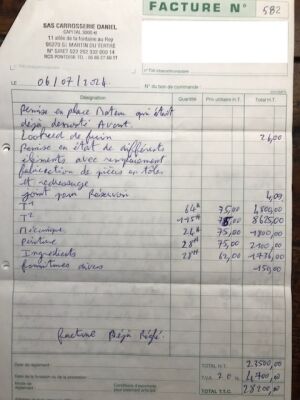 FACTURE N° 582
SAS CARROSSERIE DANIEL
CAPITAL 3000 €
11 allée de la fontaine au Roy
95270 St MARTIN DU TERTRE
N° SIRET 527 252 332 000 14
LE 06/07/2024
N° du bon de commande :
Désignation Quantité Prix unitaire H.T. Total H.T.
Remise en place Moteur qui était
déjà démonté Avant.
Lootreed de frein 24,00
Remise en état de différents
éléments avec remplacement
fabrication de pièces en tôles
et redressage
joint pour Réservoir 4,09
T1 64H 75,00 4800,00
T2 115H 75,00 8625,00
Mécanique 24H 75,00 1800,00
Peinture 28H 75,00 2100,00
Ingrédients 28H 62,00 1736,00
fournitures divers 150,00
facture Déjà Réglé.
TOTAL H.T. 23500,00
T.V.A. 20 % 4700,00
TOTAL T.T.C. 28200,00